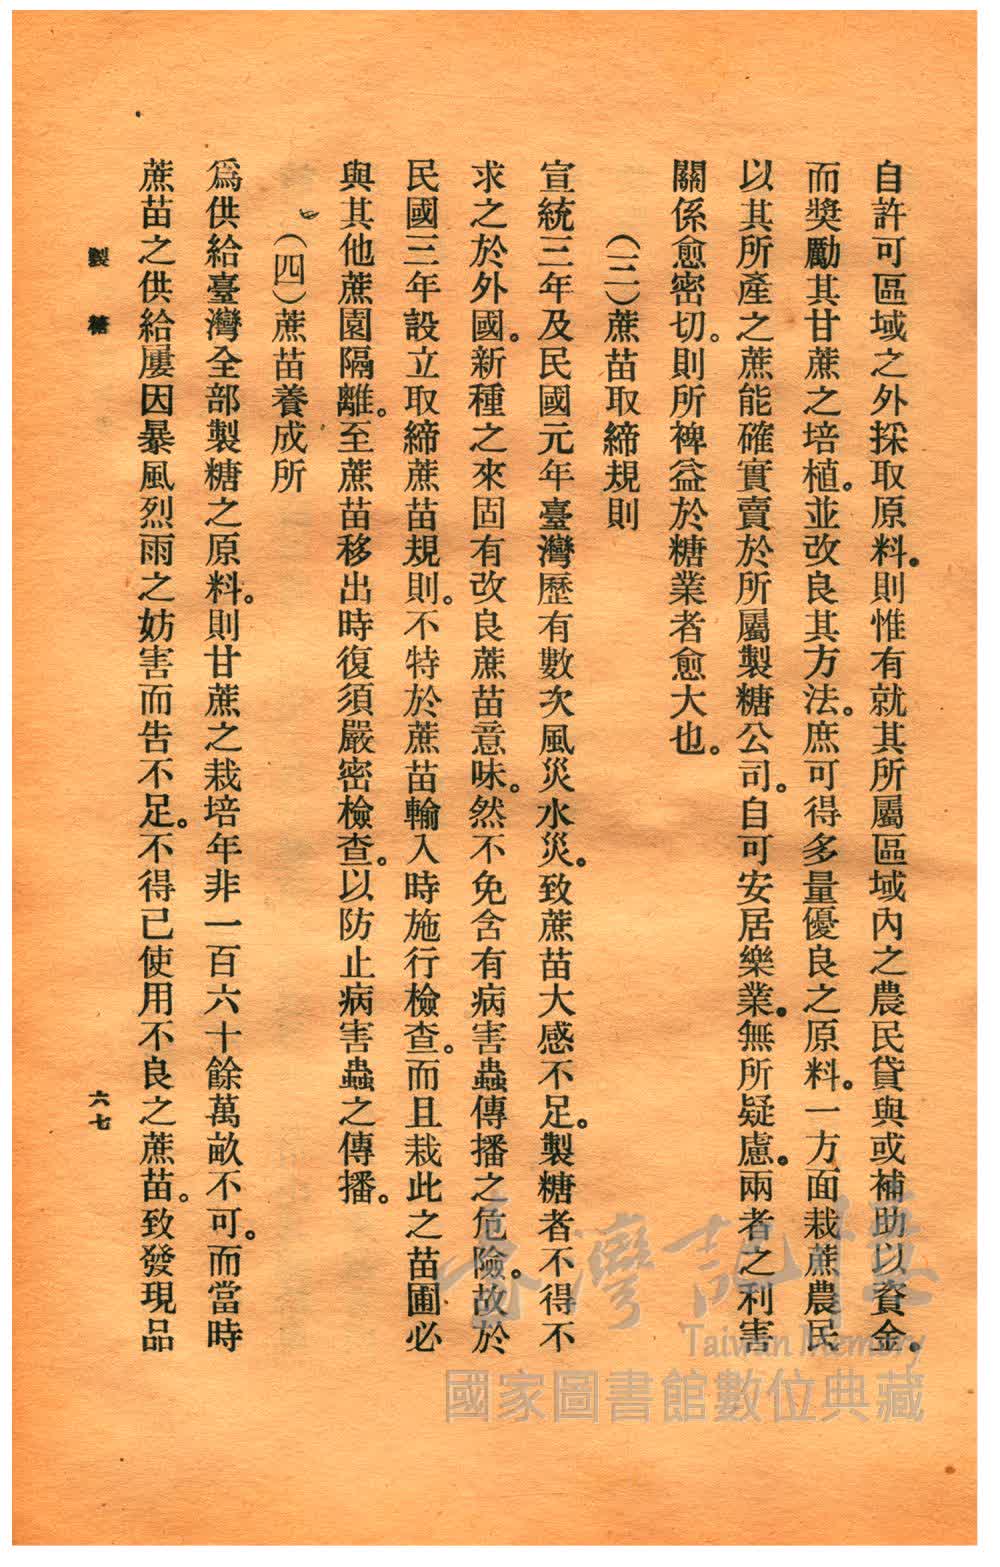 自許可區域之外採取原料。則惟有就其所屬區域內之農民貸與或補助以資金。
而獎勵其甘蔗之培植。並改良其方法。庶可得多量優良之原料。一方面栽蔗農民
以其所產之蔗能確實賣於所屬製糖公司。自可安居樂業。無所疑慮。兩者之利害
關係愈密切。則所裨益於糖業者愈大也。
(三)蔗苗取締規則
宣統三年及民國元年臺灣歷有數次風災水災。致蔗苗大感不足。製糖者不得不
求之於外國。新種之來固有改良蔗苗意味。然不免含有病害蟲傳播之危險。故於
民國三年設立取締蔗苗規則。不特於蔗苗輸入時施行檢查。而且栽此之苗圃必
與其他蔗園隔離。至蔗苗移出時復須嚴密檢查。以防止病害蟲之傳播。
(四)蔗苗養成所
爲供給臺灣全部製糖之原料。則甘蔗之栽培年非一百六十餘萬畝不可。而當時
蔗苗之供給屢因暴風烈雨之妨害而告不足。不得已使用不良之蔗苗。致發現品
製糖
六七
臺灣記憶
Taiwan Memory
國家圖書館數位典藏